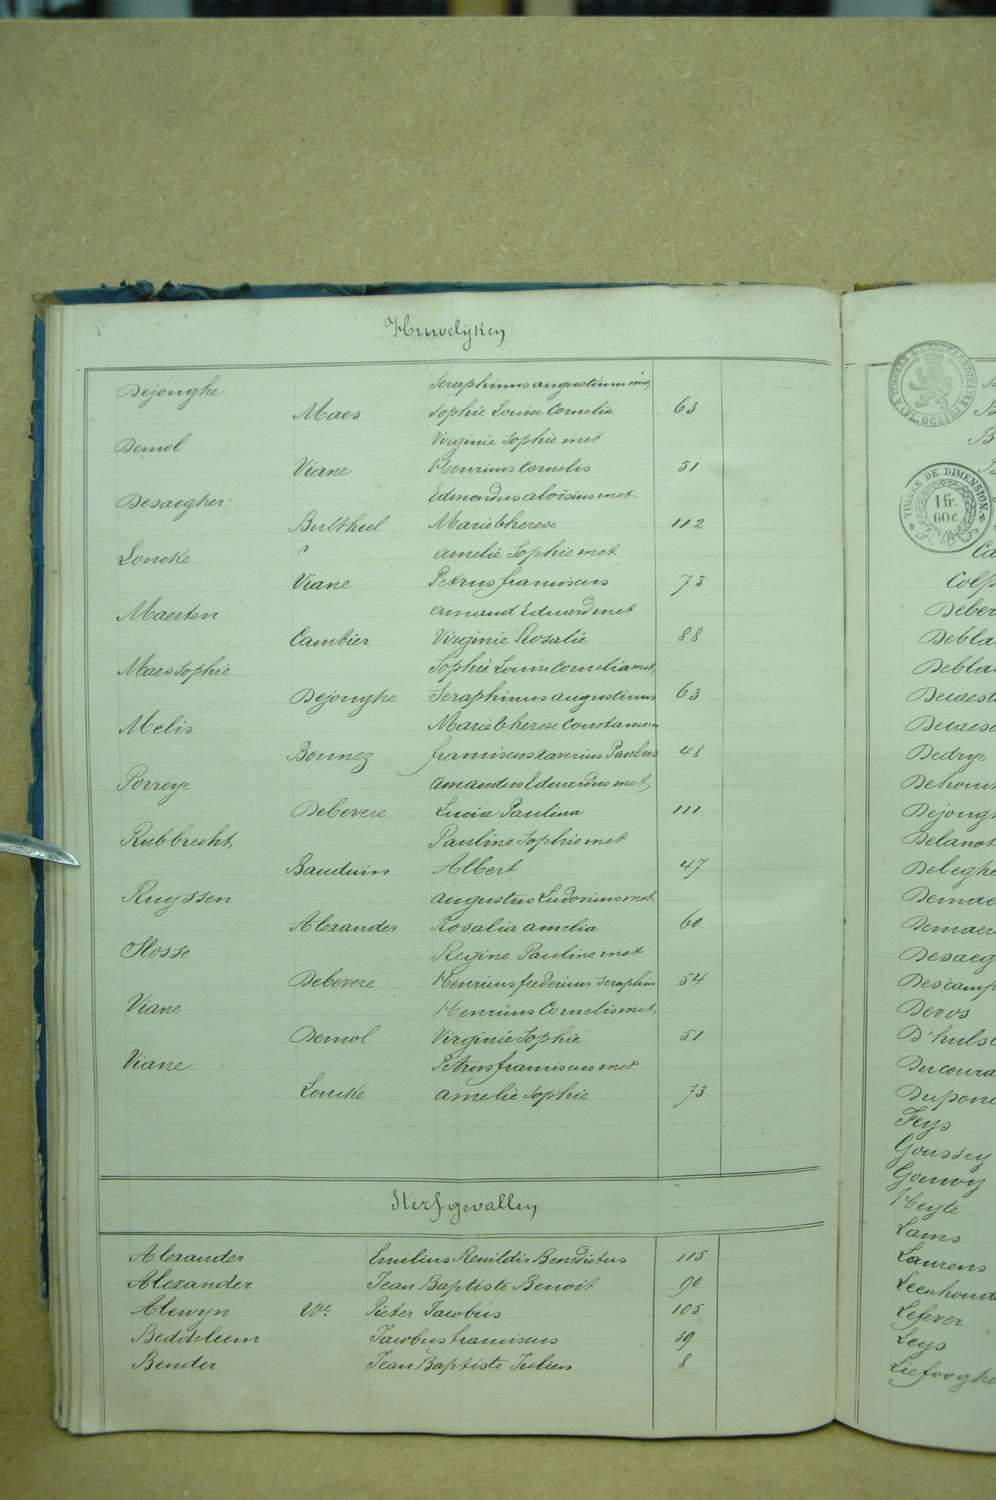 Huwelijken
Dejonghe Seraphinus augustinus met
Maes Sophie Louise Cornelie 63
Demol Virginie Sophie met
Viane Henricus Cornelis 51
Desaegher Edmondus aloïsius met
Bultheel Marie therese 112
Loncke amelie Sophie met
Viane Petrus franciscus 73
Maerten amand Eduard met
Cambier Virginie Rosalie 88
Maes Sophie Sophie Louise Cornelia met
Dejonghe Seraphinus augustinus 63
Melis Marie therese
Bonnez franciscus Paulus 48
Porreye amandus Eduardus met
Debevere Lucia Paulina 111
Rubbrecht Pauline Sophie met
Bauduin Albert 47
Ruyssen augustus Ludovicus met
Alexander Rosalia amelia 60
Slosse Regine Pauline met
Debevere Henricus fredericus Seraphin 54
Viane Henricus Cornelis met
Demol Virginie Sophie 51
Viane Petrus franciscus met
Loncke amelie Sophie 73
Sterfgevallen
Alexander Emilius Renildis Benedictus 115
Alexander Jean Baptiste Benoit 90
Alewyn We Pieter Jacobus 105
Beddeleem Jacobus franciscus 59
Jean Baptiste Julien 8
TIMBRE DE DIMENSION
1 fr.
60 c.
Colp
Deber
Debla
Debla
Dedrye
Dejong
Delanot
Deleghe
Demae
Demaer
Desaeg
Descamp
Devos
D'hulst
Ducoura
Dupon
Feys
Goussey
Gouwy
Heyte
Lams
Laurens
Leenhoud
Lefever
Leys
Liefooghe